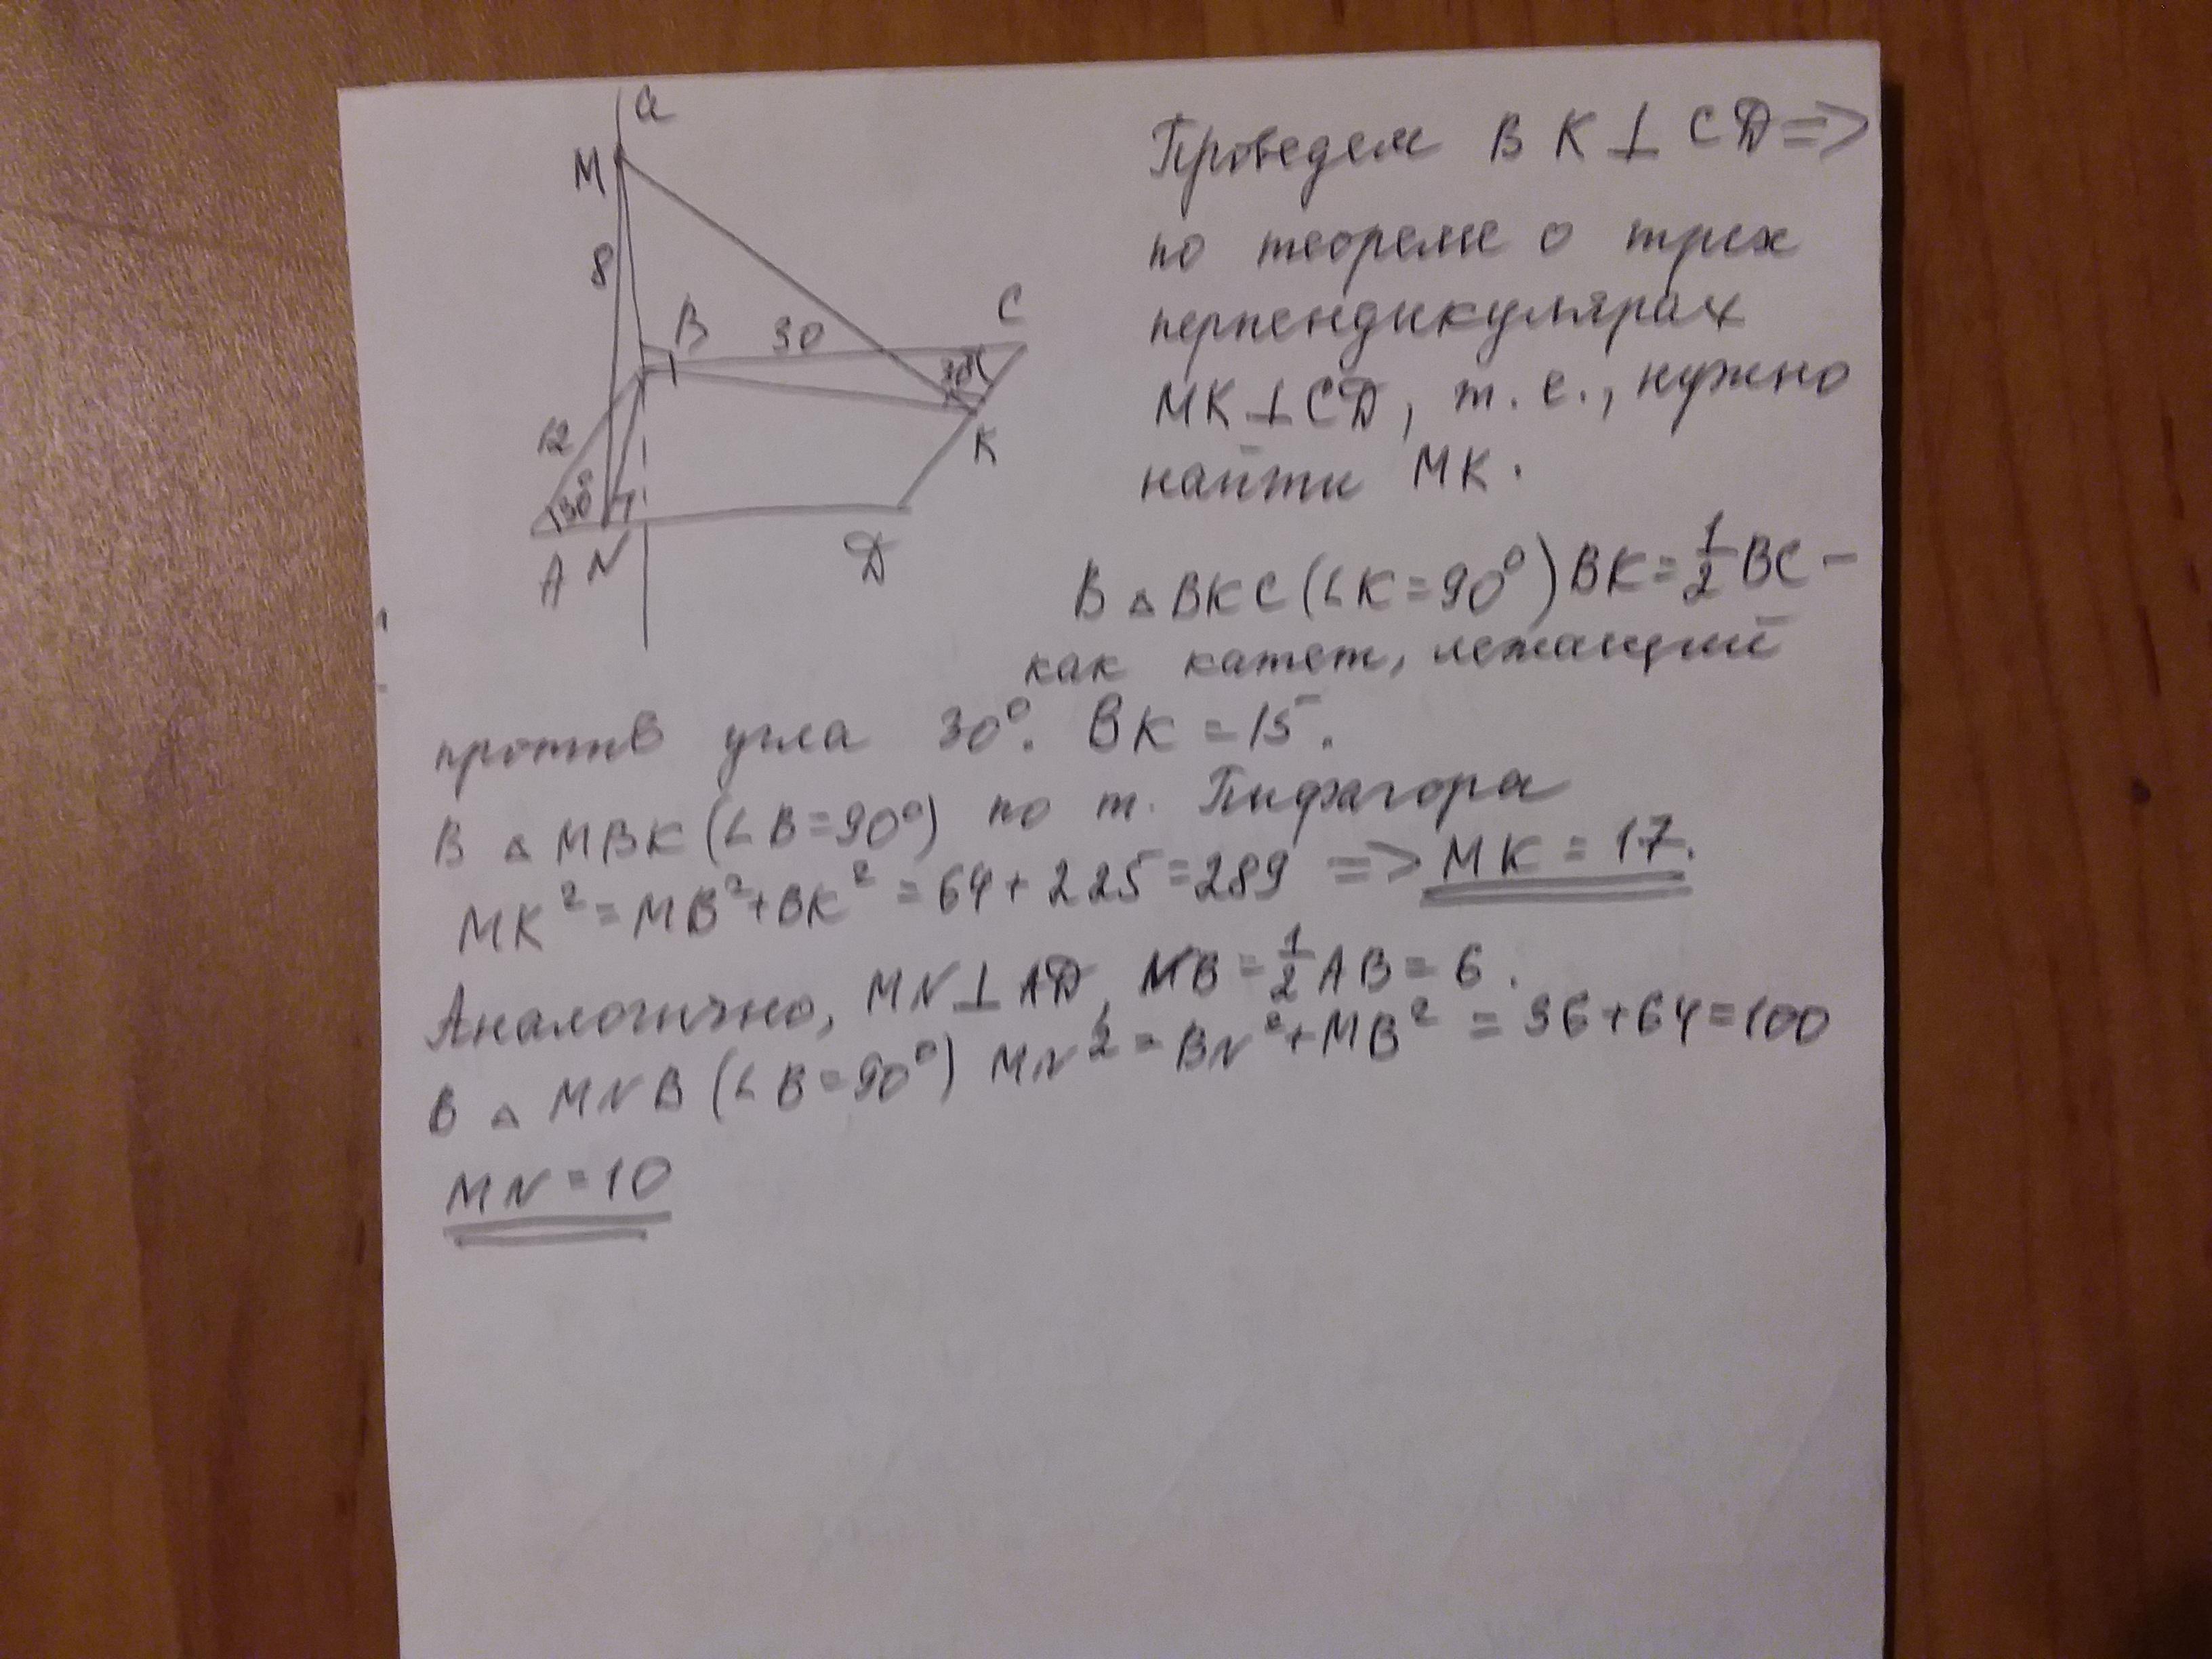 a
M
8
B
30
C
30°
K
12
30°
A N
D
Проведем BK⊥CD=>
по теореме о трех
перпендикулярах
MK⊥CD, т.е., нужно
найти MK.
В △BKC(∠K=90°)BK=1/2BC-
как катет, лежащий
против угла 30°. BK=15.
В △MBK(∠B=90°) по т. Пифагора
MK²=MB²+BK²=64+225=289 => MK=17.
Аналогично, MN⊥AD, NB=1/2AB=6.
В △MNB(∠B=90°) MN²=BN²+MB²=36+64=100
MN=10